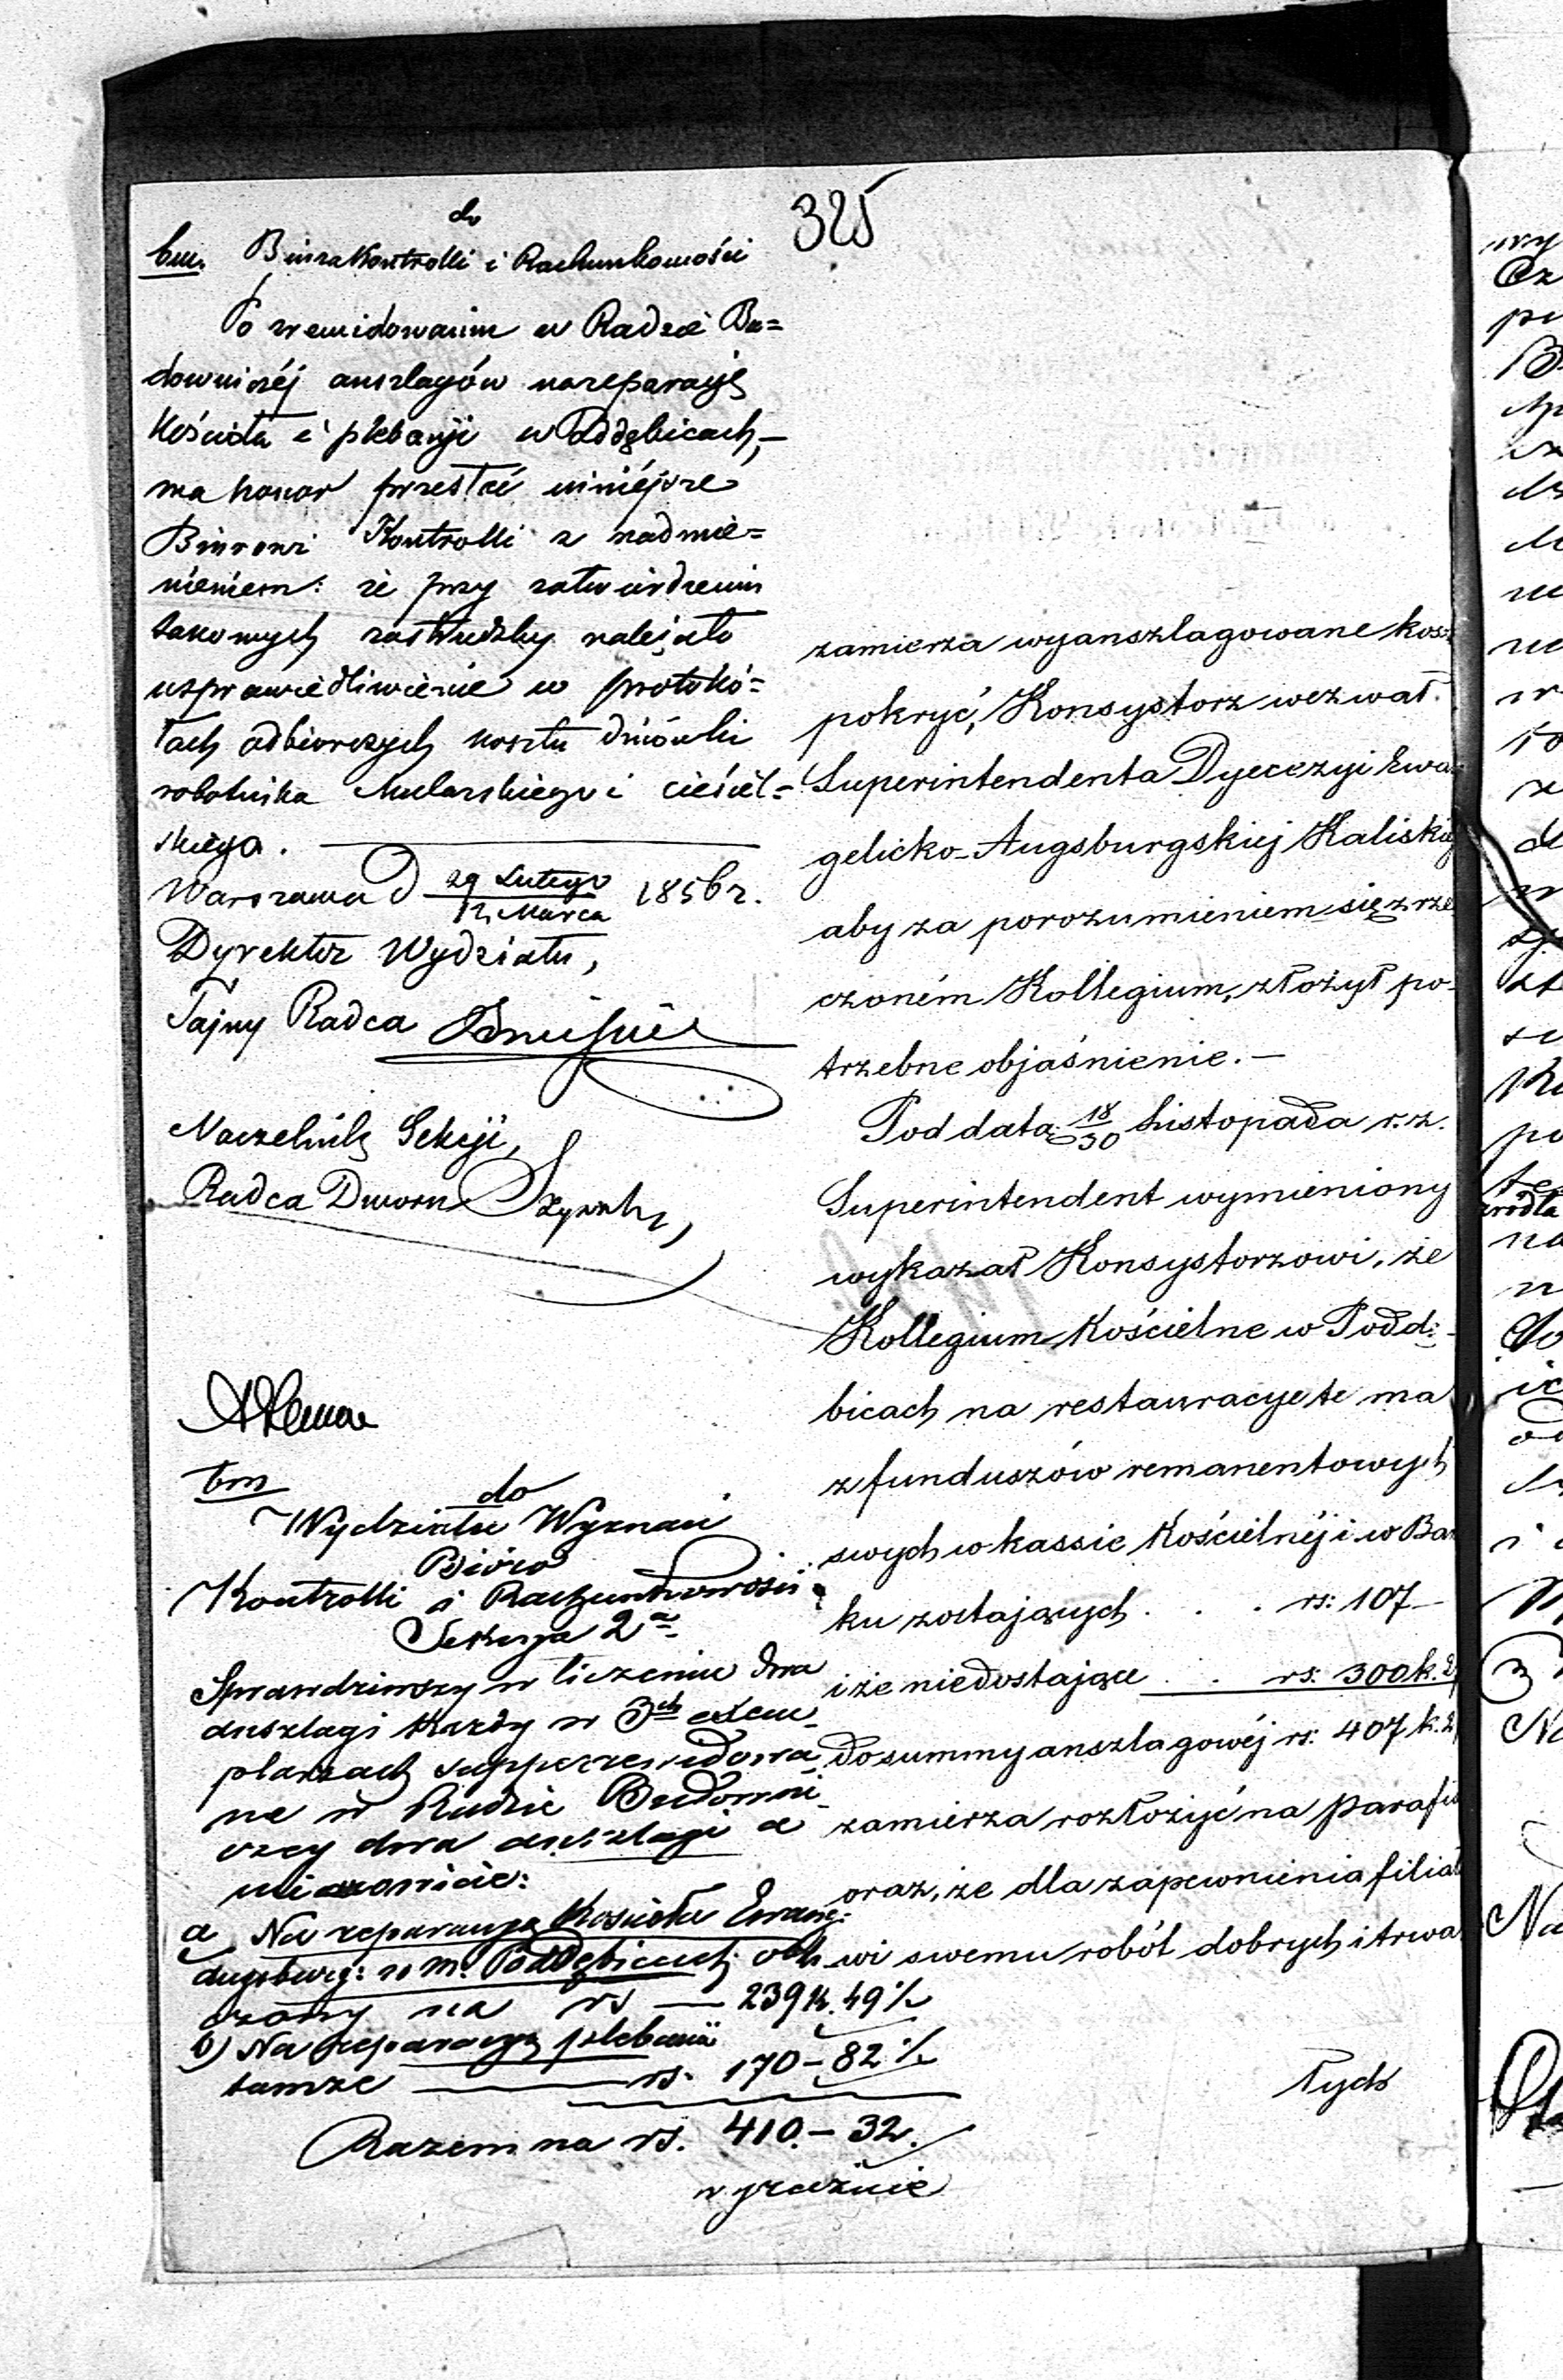 325
do
bm. Biura Kontrolli i Rachunkowości
Po zrewidowaniu w Radzie Bu=
downiczéj anszlagów na reparacyę
Kościoła i plebanji w Poddębicach,—
ma honor przesłać niniéjsze
Biurowi Kontrolli z nadmie=
nieniem: że przy zatwierdzeniu
takowych zastrzedzby należało
usprawiedliwienie w protokó=
łach odbiorczych kosztu dniówki
robotnika Mularskiego i cieśiel=
skiego.
Warszawa d 29 Lutego / 12 Marca 1856 r.
Dyrektor Wydziału,
Tajny Radca
Naczelnik Sekcji,
Radca Dworu
bm
do
Wydziału Wyznań
Bióro
Kontrolli i Rachunkowości
Sekcya 2a
Sprawdziwszy w liczeniu dwa
anszlagi każdy w 3ch exem-
plarzach superrewidowa
ne w Radzie Budowni-
czey dwa anszlagi a
mianowicie:
a Na reparacyą Kościoła Ewang:
Augsburg: w m. Poddębicach obli
czony na rs — 239 k. 49 ½
b) Na reparacyą plebanii
tamże — rs. 170 – 82 ½
Razem na rs. 410. – 32.
wyraźnie
zamierza wyanszlagowane kosz
pokryć, Konsystorz wezwał
Superintendenta Dyecezyi Ewan
gelicko-Augsburgskiej Kaliskiej
aby za porozumieniem się z rze
czoném Kollegium, złożył po-
trzebne objaśnienie.—
Pod datą 18/30 Listopada r. z.
Superintendent wymieniony
wykazał Konsystorzowi, że
Kollegium Kościelne w Poddę-
bicach na restauracye te ma
z funduszów remanentowych
swych w kassie Kościelnéj i w Ban
ku zostających . . . rs: 107—
i że niedostające . . rs: 300 k. 2
do summy anszlagowéj rs: 407 k. 2
zamierza rozłożyć na parafi
oraz, że dla zapewnienia filiało
wi swemu robót dobrych i trwa
łych